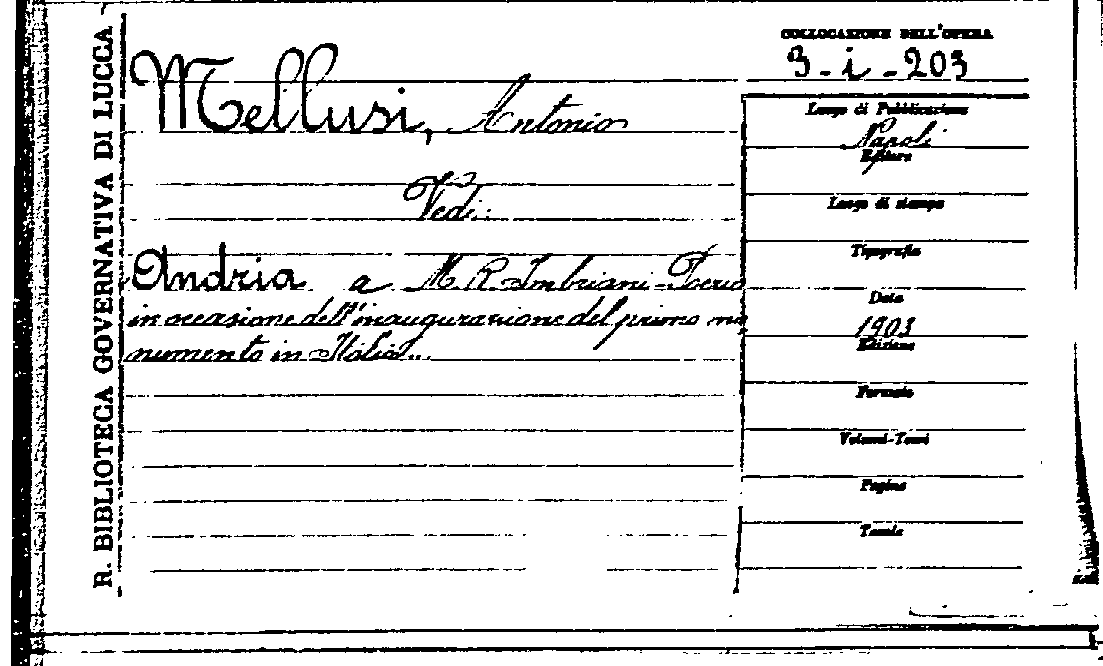 R. BIBLIOTECA GOVERNATIVA DI LUCCA
Mellusi, Antonio
Vedi:
Andria a M. R. Imbriani-Poerio
in occasione dell'inaugurazione del primo mo
numento in Italia...
COLLOCAZIONE DELL'OPERA
3-i-203
Luogo di Pubblicazione
Napoli
Editore
Luogo di stampa
Tipografia
Data
1903
Edizione
Formato
Volumi-Tomi
Pagine
Tavole